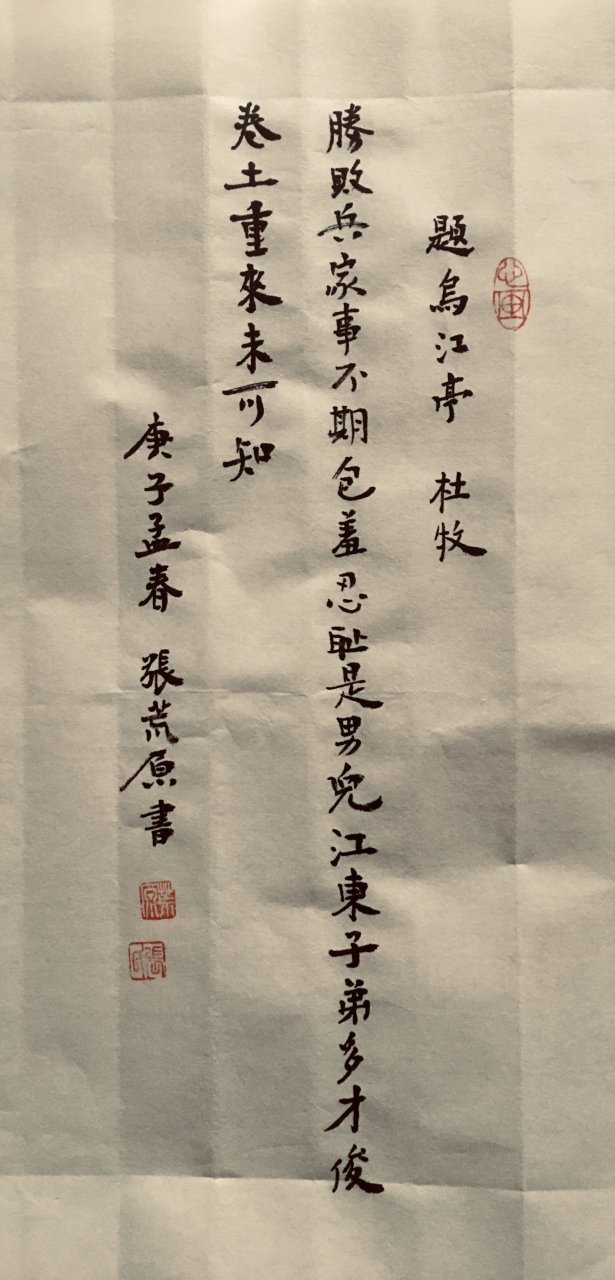 題烏江亭 杜牧
勝敗兵家事不期包羞忍恥是男兒江東子弟多才俊
卷土重來未可知
庚子孟春 張荒原書